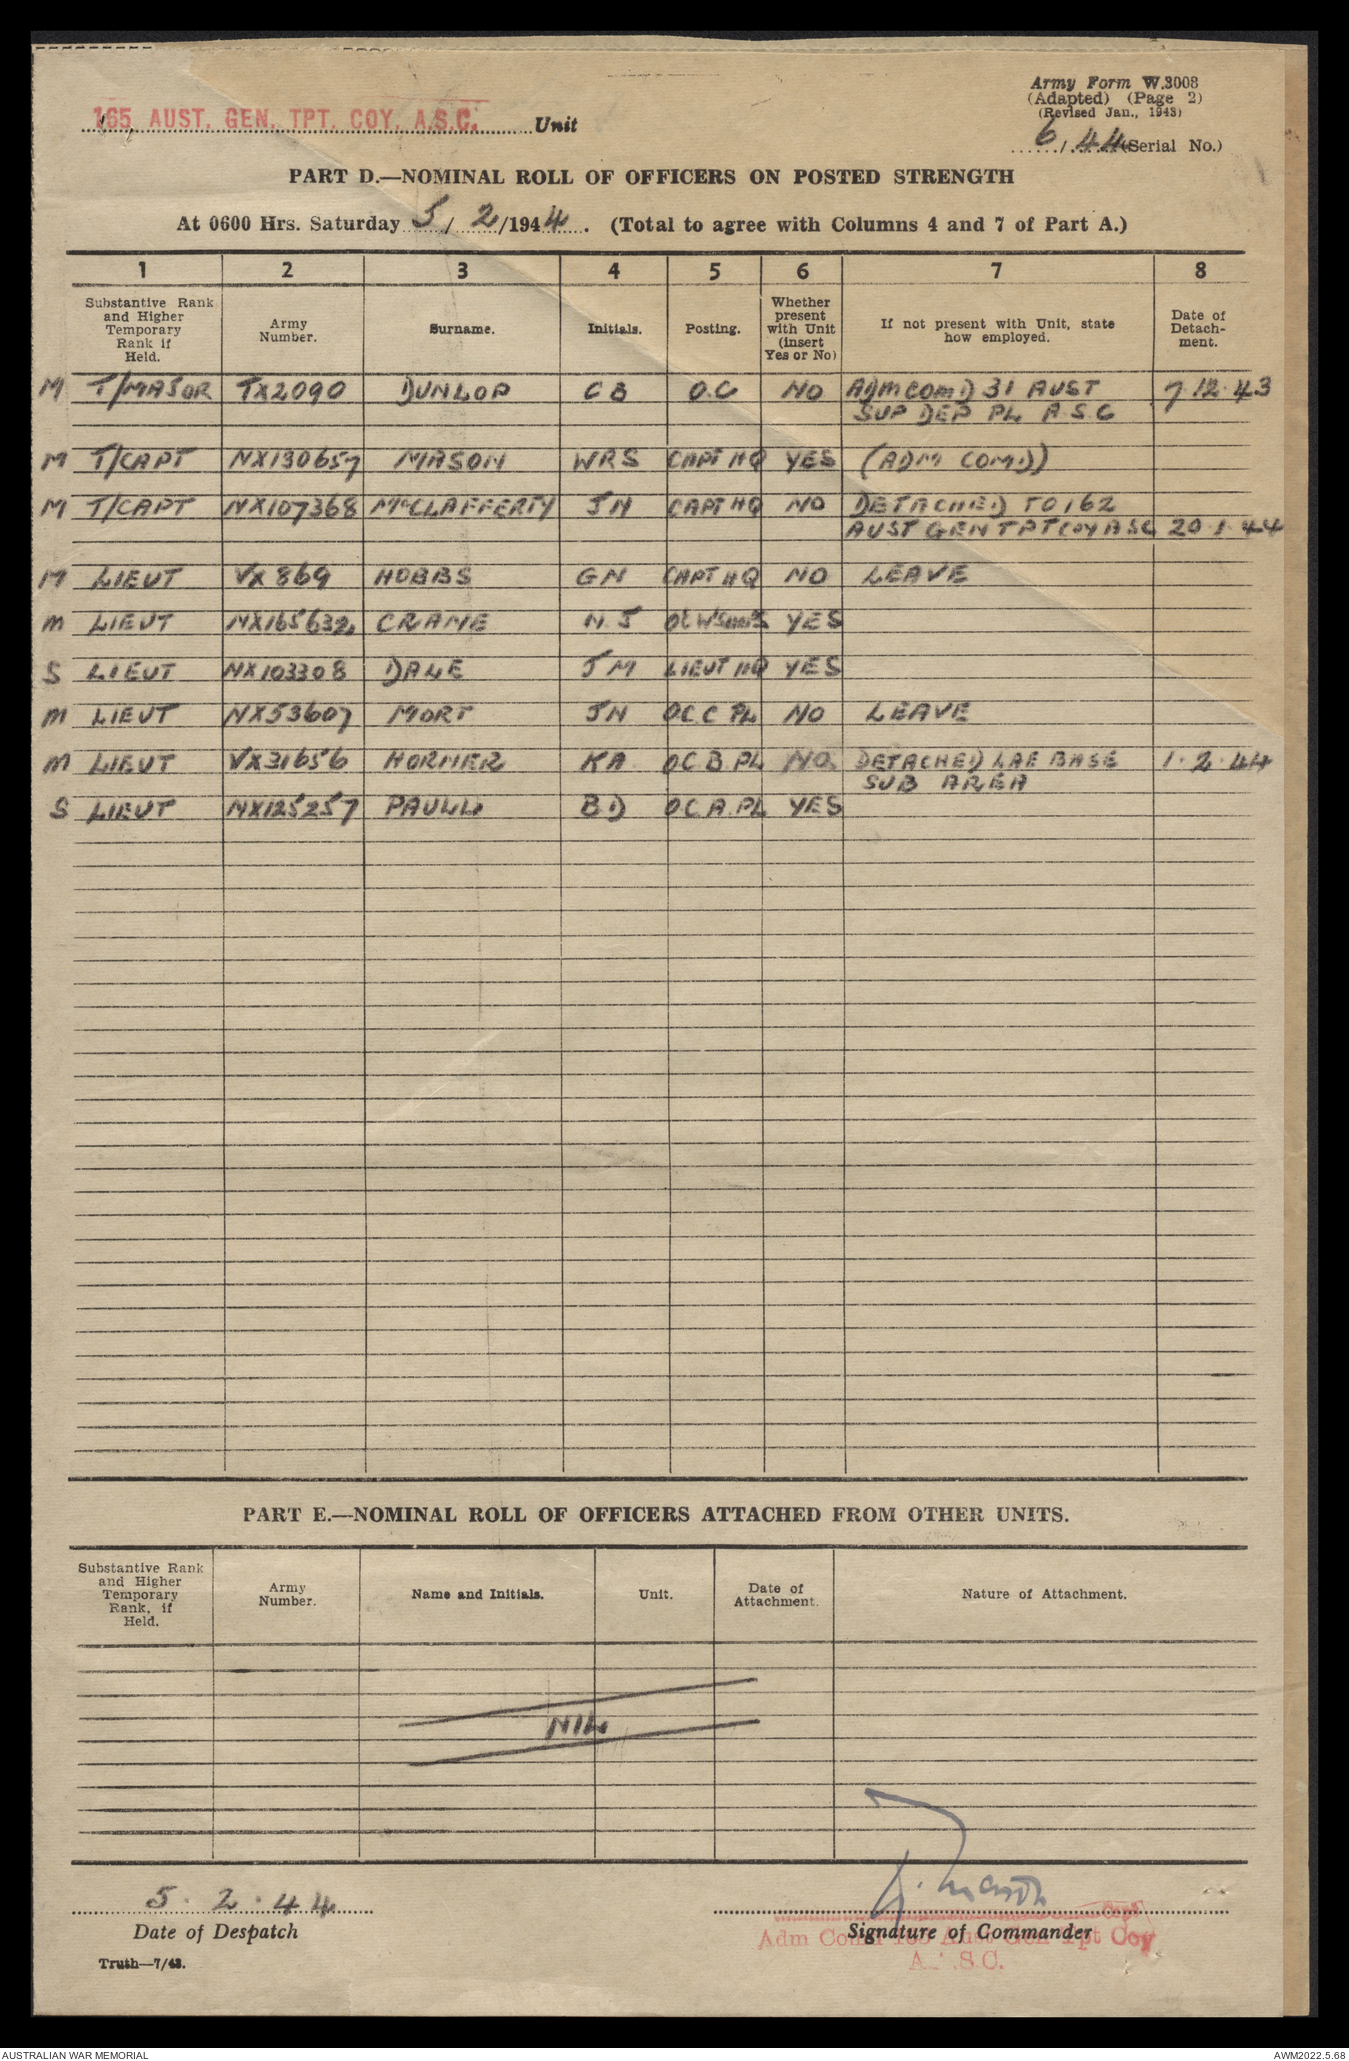 165 AUST. GEN. TPT. COY. A.S.C. Unit
Army Form W.3008
(Adapted) (Page 2)
(Revised Jan., 1943)
6/44 (Serial No.)
PART D.—NOMINAL ROLL OF OFFICERS ON POSTED STRENGTH
At 0600 Hrs. Saturday 5/2/1944. (Total to agree with Columns 4 and 7 of Part A.)
1 2 3 4 5 6 7 8
Substantive Rank and Higher Temporary Rank if Held. Army Number. Surname. Initials. Posting. Whether present with Unit (insert Yes or No) If not present with Unit, state how employed. Date of Detach-ment.
M T/MAJOR TX2090 DUNLOP CB O.C NO ADM COMD 31 AUST 7.12.43
SUP DEP PL A.S.C
M T/CAPT NX130657 MASON WRS CAPT HQ YES (ADM COMD)
M T/CAPT NX107368 McCLAFFERTY JN CAPT HQ NO DETACHED TO 162
AUST GEN TPT COY ASC 20.1.44
M LIEUT VX869 HOBBS GN CAPT HQ NO LEAVE
M LIEUT NX165632 CRANE N.J OC W'SHOPS YES
S LIEUT NX103308 DALE JM LIEUT HQ YES
M LIEUT NX53607 MORT JN OC.C PL NO LEAVE
M LIEUT VX31656 HORNER KA OC B PL NO. DETACHED LAE BASE 1.2.44
SUB AREA
S LIEUT NX125257 PAULL BD OC.A.PL YES
PART E.—NOMINAL ROLL OF OFFICERS ATTACHED FROM OTHER UNITS.
Substantive Rank and Higher Temporary Rank, if Held. Army Number. Name and Initials. Unit. Date of Attachment. Nature of Attachment.
NIL
5.2.44
Date of Despatch
Signature of Commander
Capt
Adm Comd 165 Aust Gen Tpt Coy
Truth—7/43.
AUSTRALIAN WAR MEMORIAL
AWM2022.5.68